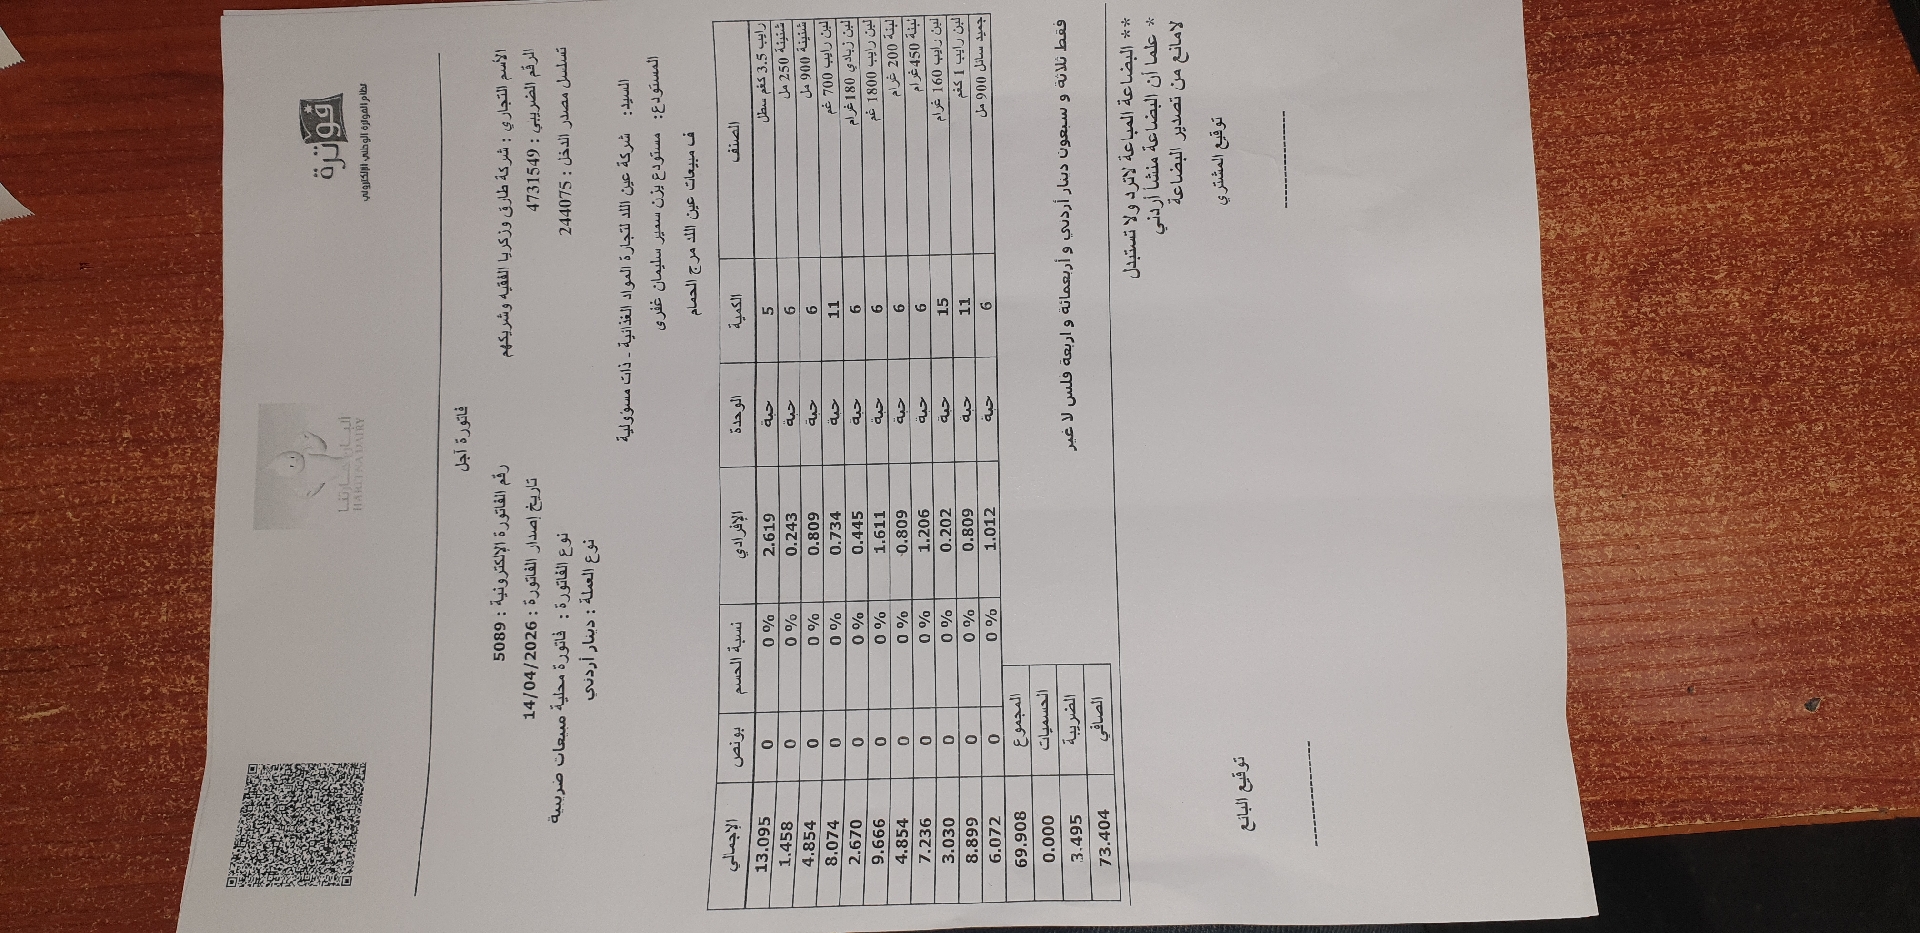 فوترة
نظام الفوترة الوطني الإلكتروني
ألبان حارتنا
HARETNA DAIRY
فاتورة آجل
الأسم التجاري : شركة طارق وزكريا الفقيه وشريكهم
رقم الفاتورة الإلكترونية : 5089
الرقم الضريبي : 4731549
تاريخ إصدار الفاتورة : 14/04/2026
تسلسل مصدر الدخل : 244075
نوع الفاتورة : فاتورة محلية مبيعات ضريبية
نوع العملة : دينار أردني
السيد: شركة عين اللد لتجارة المواد الغذائية - ذات مسؤولية
المستودع: مستودع يزن سمير سليمان غفرى
ف مبيعات عين اللد مرج الحمام
الصنف الكمية الوحدة الإفرادي نسبة الحسم بونص الإجمالي
رايب 3.5 كغم سطل 5 حبة 2.619 0 % 0 13.095
شنينة 250 مل 6 حبة 0.243 0 % 0 1.458
شنينة 900 مل 6 حبة 0.809 0 % 0 4.854
لبن رايب 700 غم 11 حبة 0.734 0 % 0 8.074
لبن زبادي 180غرام 6 حبة 0.445 0 % 0 2.670
لبن رايب 1800 غم 6 حبة 1.611 0 % 0 9.666
لبنة 200 غرام 6 حبة 0.809 0 % 0 4.854
لبنة 450غرام 6 حبة 1.206 0 % 0 7.236
لبن رايب 160 غرام 15 حبة 0.202 0 % 0 3.030
لبن رايب 1 كغم 11 حبة 0.809 0 % 0 8.899
جميد سائل 900 مل 6 حبة 1.012 0 % 0 6.072
المجموع 69.908
الحسميات 0.000
الضريبة 3.495
الصافي 73.404
فقط ثلاثة و سبعون دينار أردني و أربعمائة و اربعة فلس لا غير
** البضاعة المباعة لاترد و لا تستبدل
* علما أن البضاعة منشأ أردني
لامانع من تصدير البضاعة
توقيع المشتري
توقيع البائع